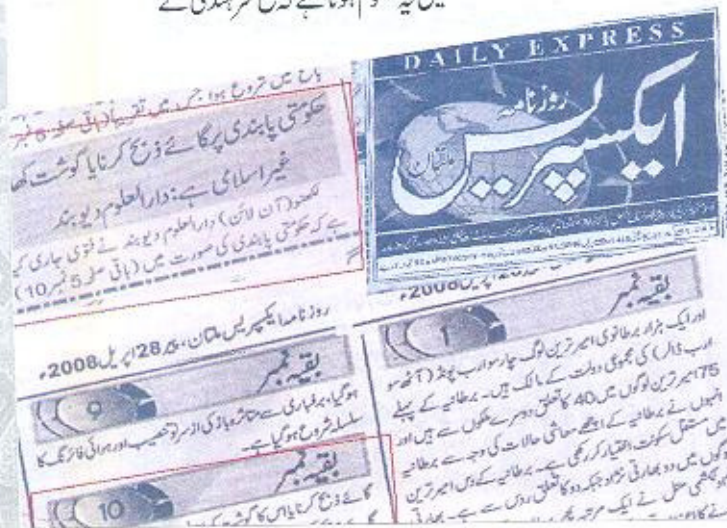 میں یہ معلوم ہوتا ہے کہ
DAILY EXPRESS
روزنامہ
ایکسپریس
ملتان
باغ میں شروع ہوا جس میں تقریباً (باقی صفحہ 5 نمبر
حکومتی پابندی پر گائے ذبح کرنا یا گوشت کھا
غیر اسلامی ہے: دارالعلوم دیوبند
لکھنو (آن لائن) دارالعلوم دیوبند نے فتویٰ جاری کیا
ہے کہ حکومتی پابندی کی صورت میں (باقی صفحہ 5 نمبر 10)
روزنامہ ایکسپریس ملتان، پیر 28 اپریل 2008ء
بقیہ نمبر 9
ہوگیا، برفباری سے متاثرہ باڑ کی از سر نو تنصیب اور ہوائی فائرنگ کا
سلسلہ شروع ہوگیا ہے۔
بقیہ نمبر 10
گائے ذبح کرنا یا اس کا گوشت
اپریل 2008ء
بقیہ نمبر 1
اور ایک ہزار برطانوی امیر ترین لوگ چار سو ارب پونڈ (آٹھ سو
ارب ڈالر) کی مجموعی دولت کے مالک ہیں۔ برطانیہ کے پہلے
75 امیر ترین لوگوں میں 40 کا تعلق دوسرے ملکوں سے ہیں اور
انہوں نے برطانیہ کے اچھے معاشی حالات کی وجہ سے برطانیہ
میں مستقل سکونت اختیار کر رکھی ہے۔ برطانیہ کے دس امیر ترین
لوگوں میں دو بھارتی نژاد جبکہ دو کا تعلق روس سے ہے۔ بھارتی
متل نے ایک مرتبہ پھر